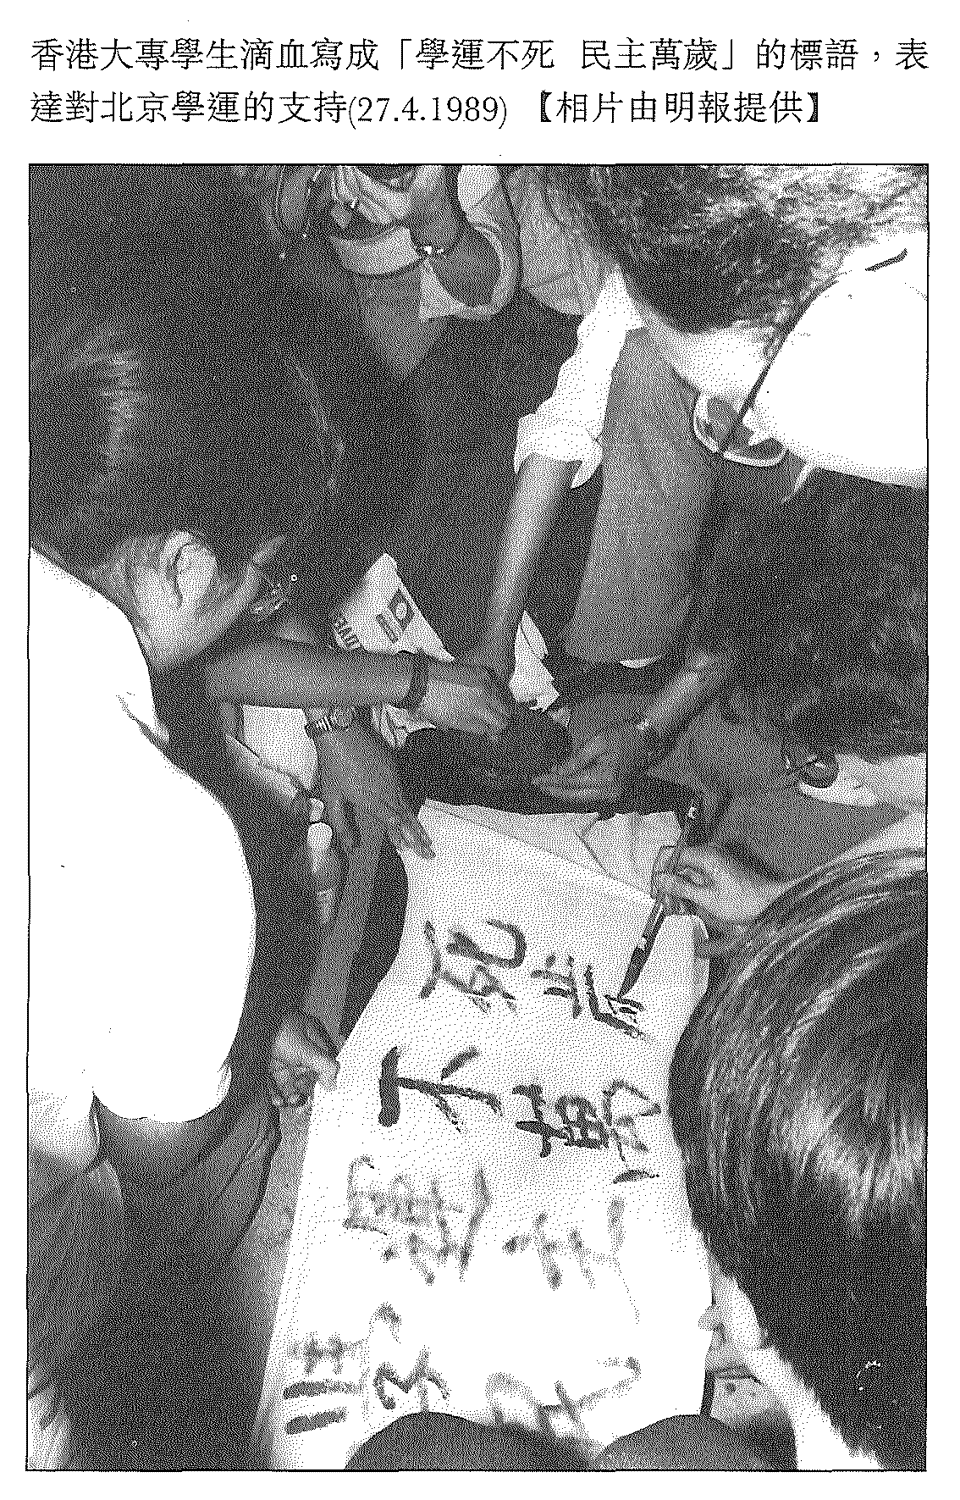 香港大專學生滴血寫成「學運不死 民主萬歲」的標語，表
達對北京學運的支持(27.4.1989) 【相片由明報提供】
學運不死
民主萬